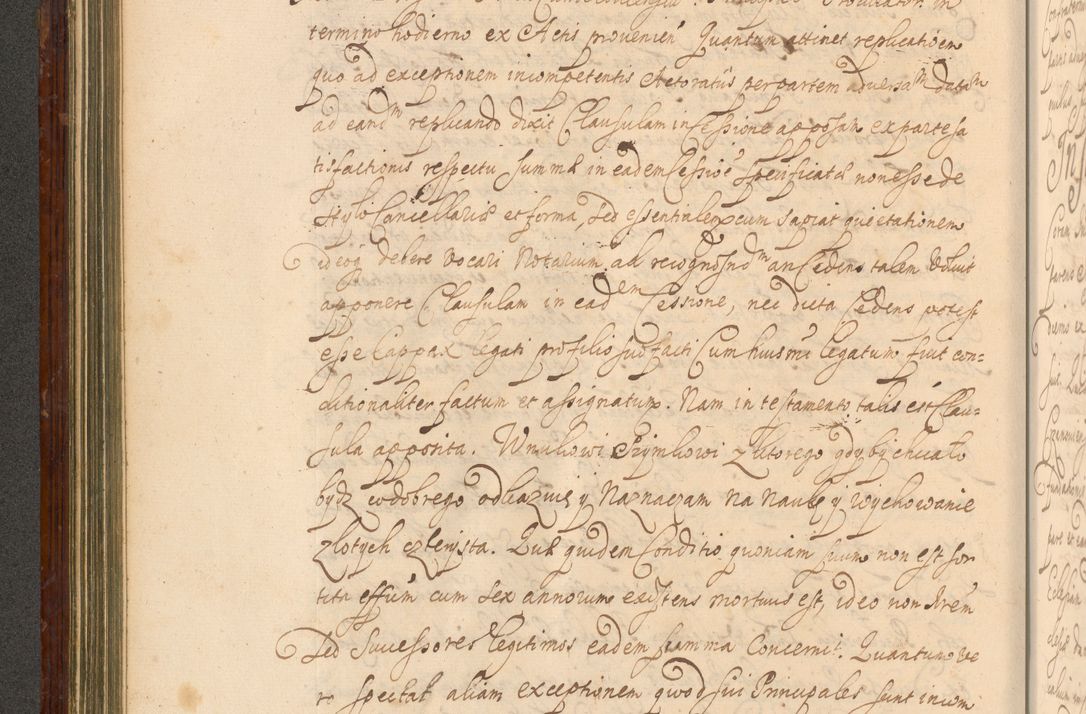 termino hodierno ex Actis provenien Quantum attinet replicatioem
quo ad exceptionem incompetentis Actoratus per partem adversam datam
ad eandm replicando dixit Clausulam in Cessione apposam ex parte sa
tisfactionis respectu summæ in eadem Cessioe specificatæ non esse de
stylo Cancellariæ et forma, sed essentialem cum sapiat quietationem
ideoq debere vocari Notarium ad recognosndm an Cedens talem voluit
apponere Clausulam in eadem Cessione, nec dicta Cedens potest
esse Cappax legati pro filio sui facti Cum huius mi legatum fuit con=
ditionaliter factum et assignatum. Nam in testamento talis est Clau=
sula apposita. Wnukowi Szymkowi z ktorego gdyby chciało
bydz co dobrego odkazuię y Naznaczam na Naukę y wychowanie
złotych czterysta. Quæ quidem Conditio quoniam suum non est sor
tita effum cum sex annorum existens mortuus est, ideo non Arem
sed Successores legitimos eadem summa Concernit. Quantum ve
ro spectat aliam exceptionem quod sui Principales sunt incom